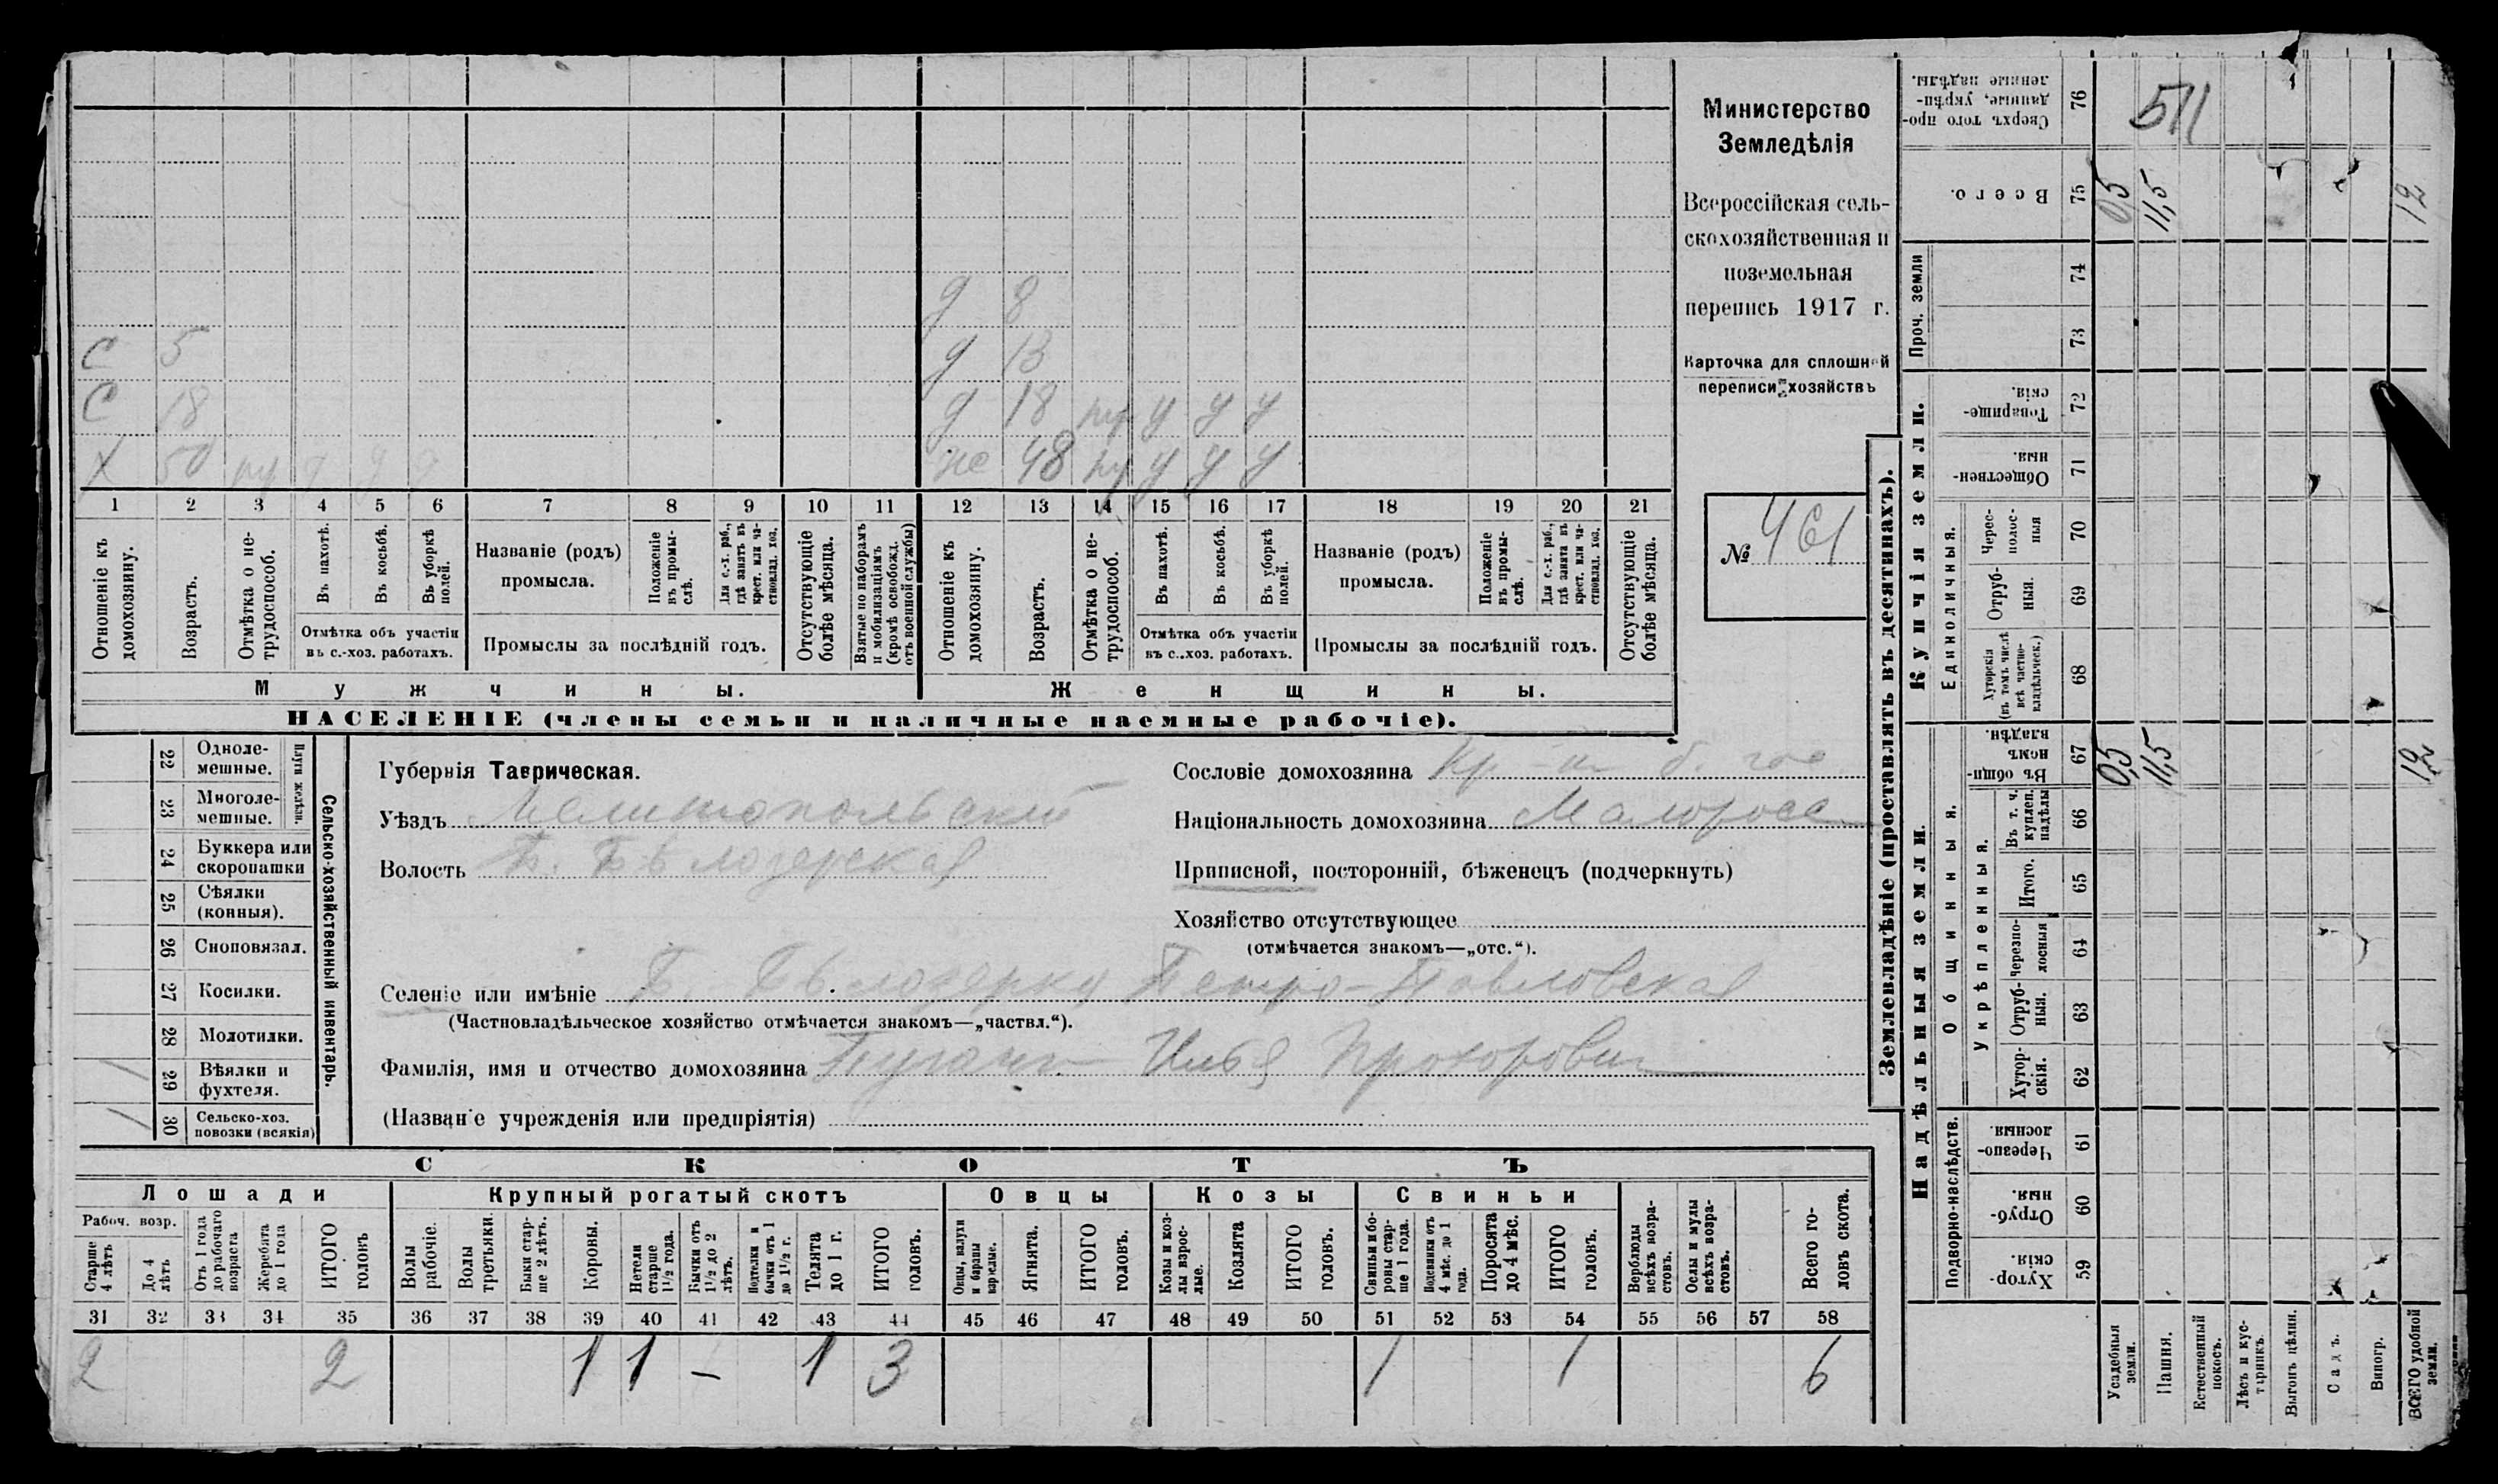 Министерство
Земледѣлія
Всероссійская сель-
скохозяйственная и
поземельная
перепись 1917 г.
Карточка для сплошной
переписи хозяйствъ
№ 461
д 8
С 5 д 13
С 18 д 18 у у у
Х 50 же 48 у у у
1 2 3 4 5 6 7 8 9 10 11 12 13 14 15 16 17 18 19 20 21
Отношеніе къ домохозяину.
Возрастъ.
Отмѣтка о не-трудоспособ.
Въ пахотѣ.
Въ косьбѣ.
Въ уборкѣ полей.
Отмѣтка объ участіи
въ с.-хоз. работахъ.
Названіе (родъ)
промысла.
Положеніе въ промы-слѣ.
Для с.-х. раб., гдѣ занятъ въ крест. или ча-стновлад. хоз.
Промыслы за послѣдній годъ.
Отсутствующіе болѣе мѣсяца.
Взятые по наборамъ и мобилизаціямъ (кромѣ освобожд. отъ военной службы)
Отношеніе къ домохозяину.
Возрастъ.
Отмѣтка о не-трудоспособ.
Въ пахотѣ.
Въ косьбѣ.
Въ уборкѣ полей.
Отмѣтка объ участіи
въ с..хоз. работахъ.
Названіе (родъ)
промысла.
Положеніе въ промы-слѣ.
Для с.-х. раб., гдѣ занята въ крест. или ча-стновлад. хоз.
Промыслы за послѣдній годъ.
Отсутствующіе болѣе мѣсяца.
Мужчины.
Женщины.
НАСЕЛЕНІЕ (члены семьи и наличные наемные рабочіе).
Сельско-хозяйственный инвентарь.
Плуги желѣзн.
22 Одноле-
мешные.
23 Многоле-
мешные.
24 Буккера или
скоропашки
25 Сѣялки
(конныя).
26 Сноповязал.
27 Косилки.
28 Молотилки.
29 Вѣялки и
фухтеля.
1
30 Сельско-хоз.
повозки (всякія)
1
Губернія Таврическая.
Уѣздъ Мелитопольскій
Волость Б. Бѣлозерская
Сословіе домохозяина
Національность домохозяина Малоросс
Приписной, посторонній, бѣженецъ (подчеркнуть)
Хозяйство отсутствующее
(отмѣчается знакомъ—„отс.“).
Селеніе или имѣніе Б. Бѣлозерку Петро-Павловская
(Частновладѣльческое хозяйство отмѣчается знакомъ—„частвл.“).
Фамилія, имя и отчество домохозяина Илья Прохорович
(Названіе учрежденія или предпріятія)
СКОТЪ
Лошади
Крупный рогатый скотъ
Овцы
Козы
Свиньи
Рабоч. возр.
Старше 4 лѣтъ
До 4 лѣтъ
Отъ 1 года до рабочаго возраста
Жеребята до 1 года
ИТОГО головъ
Волы рабочіе.
Волы третьяки.
Быки стар-ше 2 лѣтъ.
Коровы.
Нетели старше 1½ года.
Бычки отъ 1½ до 2 лѣтъ.
Подтелки и бычки отъ 1 до 1½ г.
Телята до 1 г.
ИТОГО головъ.
Овцы, валухи и бараны взрослые.
Ягнята.
ИТОГО головъ.
Козы и коз-лы взрос-лые.
Козлята
ИТОГО головъ.
Свиньи и бо-ровы стар-ше 1 года.
Подсвинки отъ 4 мѣс. до 1 года.
Поросята до 4 мѣс.
ИТОГО головъ.
Верблюды всѣхъ возра-стовъ.
Ослы и мулы всѣхъ возра-стовъ.
Всего го-ловъ скота.
31 32 33 34 35 36 37 38 39 40 41 42 43 44 45 46 47 48 49 50 51 52 53 54 55 56 57 58
2 2 1 1 - 1 3 1 1 6
Землевладѣніе (проставлять въ десятинахъ).
Купчія земли.
Надѣльныя земли.
Сверхъ того про-данные, укрѣп-ленные надѣлы. 76 511
Всего. 75 0,5 11,5 12
Проч. земли
74
73
Товарище-скія. 72
Обществен-ныя. 71
Единоличныя.
Черес-полос-ныя 70
Отруб-ныя. 69
Хуторскія (въ томъ числѣ всѣ частно-владѣльческ.) 68
Общинныя.
Въ общи-номъ владѣн. 67 0,5 11,5 12
Укрѣпленныя.
Въ т. ч. куплен. надѣлы 66
Итого. 65
Черезпо-лосныя 64
Отруб-ныя. 63
Хутор-скія. 62
Подворно-наслѣдств.
Черезпо-лосныя. 61
Отруб-ныя. 60
Хутор-скія. 59
Усадебныя земли.
Пашня.
Естественный покосъ.
Лѣсъ и кус-тарникъ.
Выгонъ цѣлин.
Садъ.
Виногр.
ВСЕГО удобной земли.